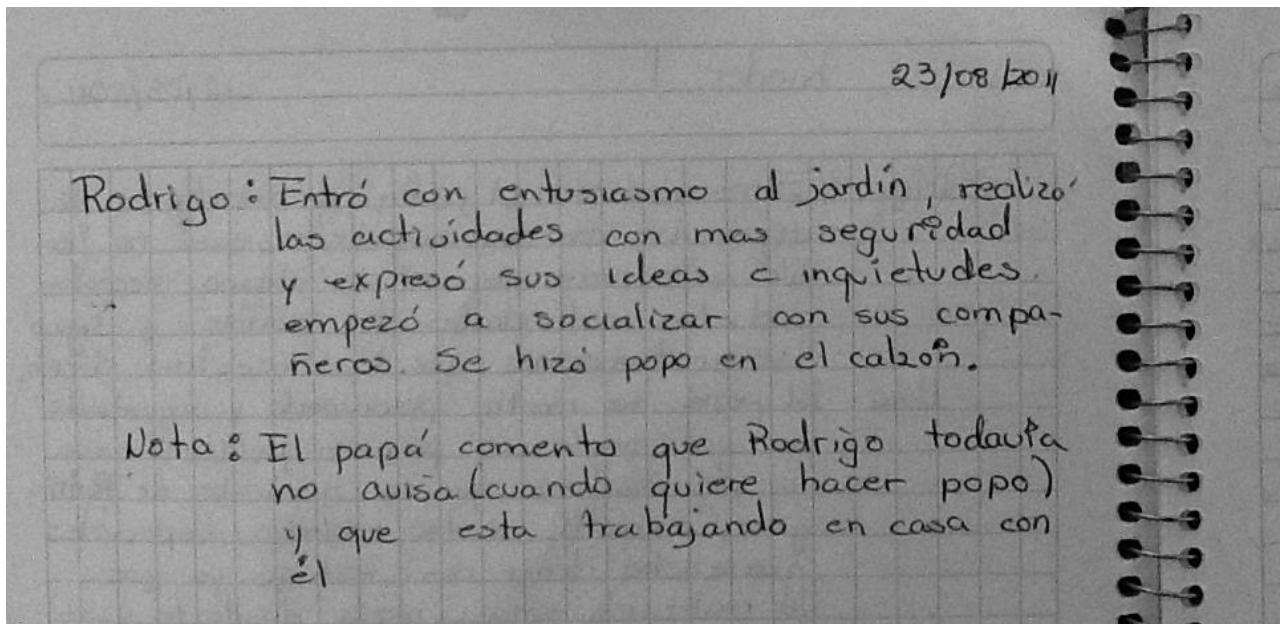 23/08/2011
Rodrigo: Entró con entusiasmo al jardín, realizó
las actividades con mas seguridad
y expresó sus ideas e inquietudes.
empezó a socializar con sus compa-
ñeros. Se hizó popo en el calzón.
Nota: El papá comento que Rodrigo todavía
no avisa (cuando quiere hacer popo)
y que esta trabajando en casa con
él